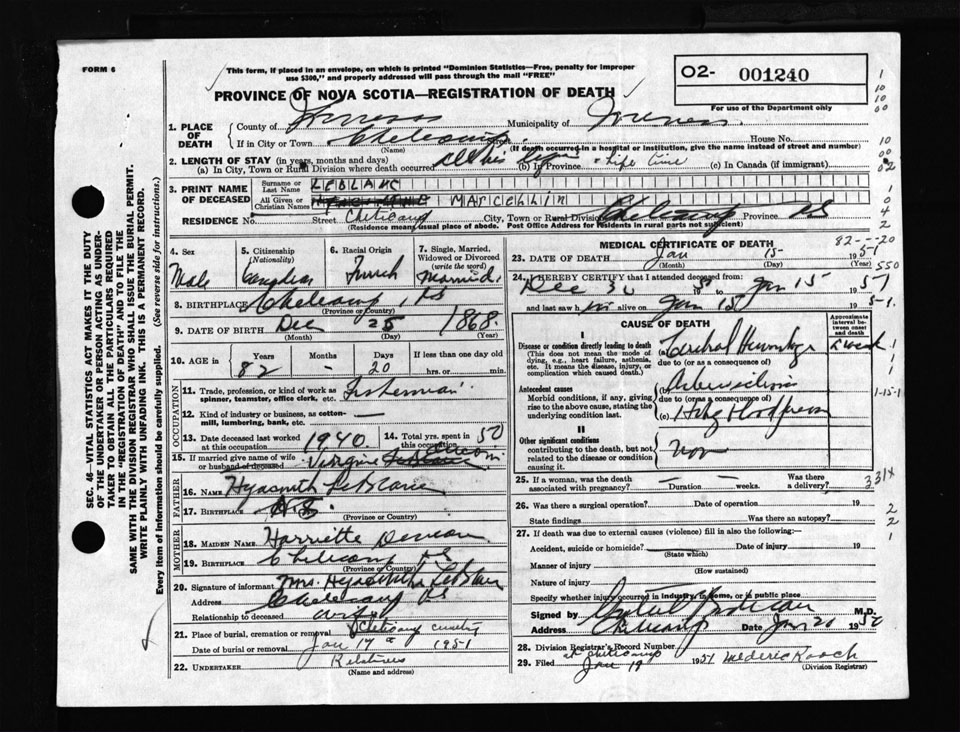 FORM 6
This form, if placed in an envelope, on which is printed "Dominion Statistics—Free, penalty for improper
use $300," and properly addressed will pass through the mail "FREE"
O2- 001240
For use of the Department only
PROVINCE OF NOVA SCOTIA—REGISTRATION OF DEATH
1. PLACE OF DEATH { County of Inverness Municipality of Inverness
If in City or Town Cheticamp House No.
(Name) (If death occurred in a hospital or institution, give the name instead of street and number)
2. LENGTH OF STAY (in years, months and days)
(a) In City, Town or Rural Division where death occurred (b) In Province Life time (c) In Canada (if immigrant)
3. PRINT NAME OF DECEASED { Surname or Last Name LEBLANC
All Given or Christian Names MARCELLIN
RESIDENCE No. Street Cheticamp City, Town or Rural Division Cheticamp Province NS
(Residence means usual place of abode. Post Office Address for residents in rural parts not sufficient)
4. Sex Male
5. Citizenship (Nationality) Canadian
6. Racial Origin French
7. Single, Married, Widowed or Divorced (write the word) Married
8. BIRTHPLACE Cheticamp, NS
(Province or Country)
9. DATE OF BIRTH Dec 25 1868
(Month) (Day)
10. AGE in Years 82 Months - Days 20 If less than one day old hrs. or min.
OCCUPATION
11. Trade, profession, or kind of work as spinner, teamster, office clerk, etc. Fisherman
12. Kind of industry or business, as cotton-mill, lumbering, bank, etc.
13. Date deceased last worked at this occupation 1940. 14. Total yrs. spent in this occupation 50
15. If married give name of wife or husband of deceased Virginie
FATHER
16. NAME Hyacinth LeBlanc
17. BIRTHPLACE NS
(Province or Country)
MOTHER
18. MAIDEN NAME Harriette
19. BIRTHPLACE Cheticamp NS
(Province or Country)
20. Signature of informant Mrs. Hyacinthe LeBlanc
Address Cheticamp NS
Relationship to deceased
21. Place of burial, cremation or removal Cheticamp cemetery
Date of burial or removal Jan 17 1951
22. UNDERTAKER Relatives
(Name and address)
MEDICAL CERTIFICATE OF DEATH
82---20
23. DATE OF DEATH Jan 15 1951
(Month) (Day)
24. I HEREBY CERTIFY that I attended deceased from:
Dec 30 19 to Jan 15 1951
and last saw him alive on Jan 15 1951.
CAUSE OF DEATH
Approximate interval between onset and death
Disease or condition directly leading to death
(This does not mean the mode of dying, e.g., heart failure, asthenia, etc. It means the disease, injury, or complication which caused death.)
(a) Cerebral Hemorrhage 2 week
due to (or as a consequence of)
Antecedent causes
Morbid conditions, if any, giving rise to the above cause, stating the underlying condition last.
(b)
due to (or as a consequence of)
(c) High Blood pressure
II
Other significant conditions
contributing to the death, but not related to the disease or condition causing it.
25. If a woman, was the death associated with pregnancy? — Duration — weeks Was there a delivery?
331X
26. Was there a surgical operation? Date of operation 19
State findings Was there an autopsy?
27. If death was due to external causes (violence) fill in also the following:
Accident, suicide or homicide? Date of injury 19
(State which)
Manner of injury
(How sustained)
Nature of injury
Specify whether injury occurred in industry, in home, or in public place
Signed by M.D.
Address Cheticamp Date Jan 20 195
28. Division Registrar's Record Number
29. Filed at Cheticamp Jan 19 1951 Roach
(Division Registrar)
SEC. 46—VITAL STATISTICS ACT MAKES IT THE DUTY
OF THE UNDERTAKER OR PERSON ACTING AS UNDER-
TAKER TO OBTAIN ALL THE PARTICULARS REQUIRED
IN THE "REGISTRATION OF DEATH" AND TO FILE THE
SAME WITH THE DIVISION REGISTRAR WHO SHALL ISSUE THE BURIAL PERMIT.
WRITE PLAINLY WITH UNFADING INK. THIS IS A PERMANENT RECORD.
Every item of information should be carefully supplied. (See reverse side for instructions.)